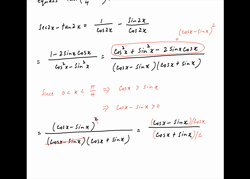 sec2x - tan2x = 1/cos2x - sin2x/cos2x
(cosx - sinx)²
= (1 - 2sinx cosx)/(cos²x - sin²x) = (cos²x + sin²x - 2sinx cosx)/((cosx - sinx)(cosx + sinx))
Since 0 < x < π/4 ⇒ cosx > sinx
⇒ cosx - sinx > 0
= (cosx - sinx)²/((cosx - sinx)(cosx + sinx)) = (cosx - sinx)/cosx / (cosx + sinx)/c